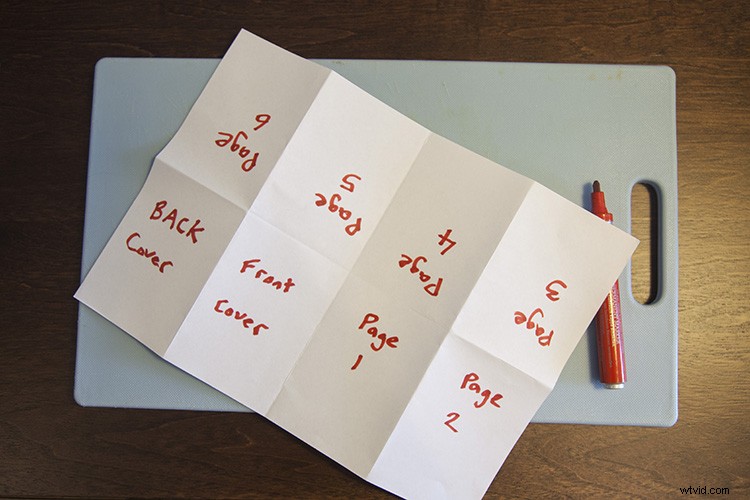 Page
6
Page
5
Page
4
Page
3
BACK
Cover
Front
Cover
Page
1
Page
2
wtvid.com